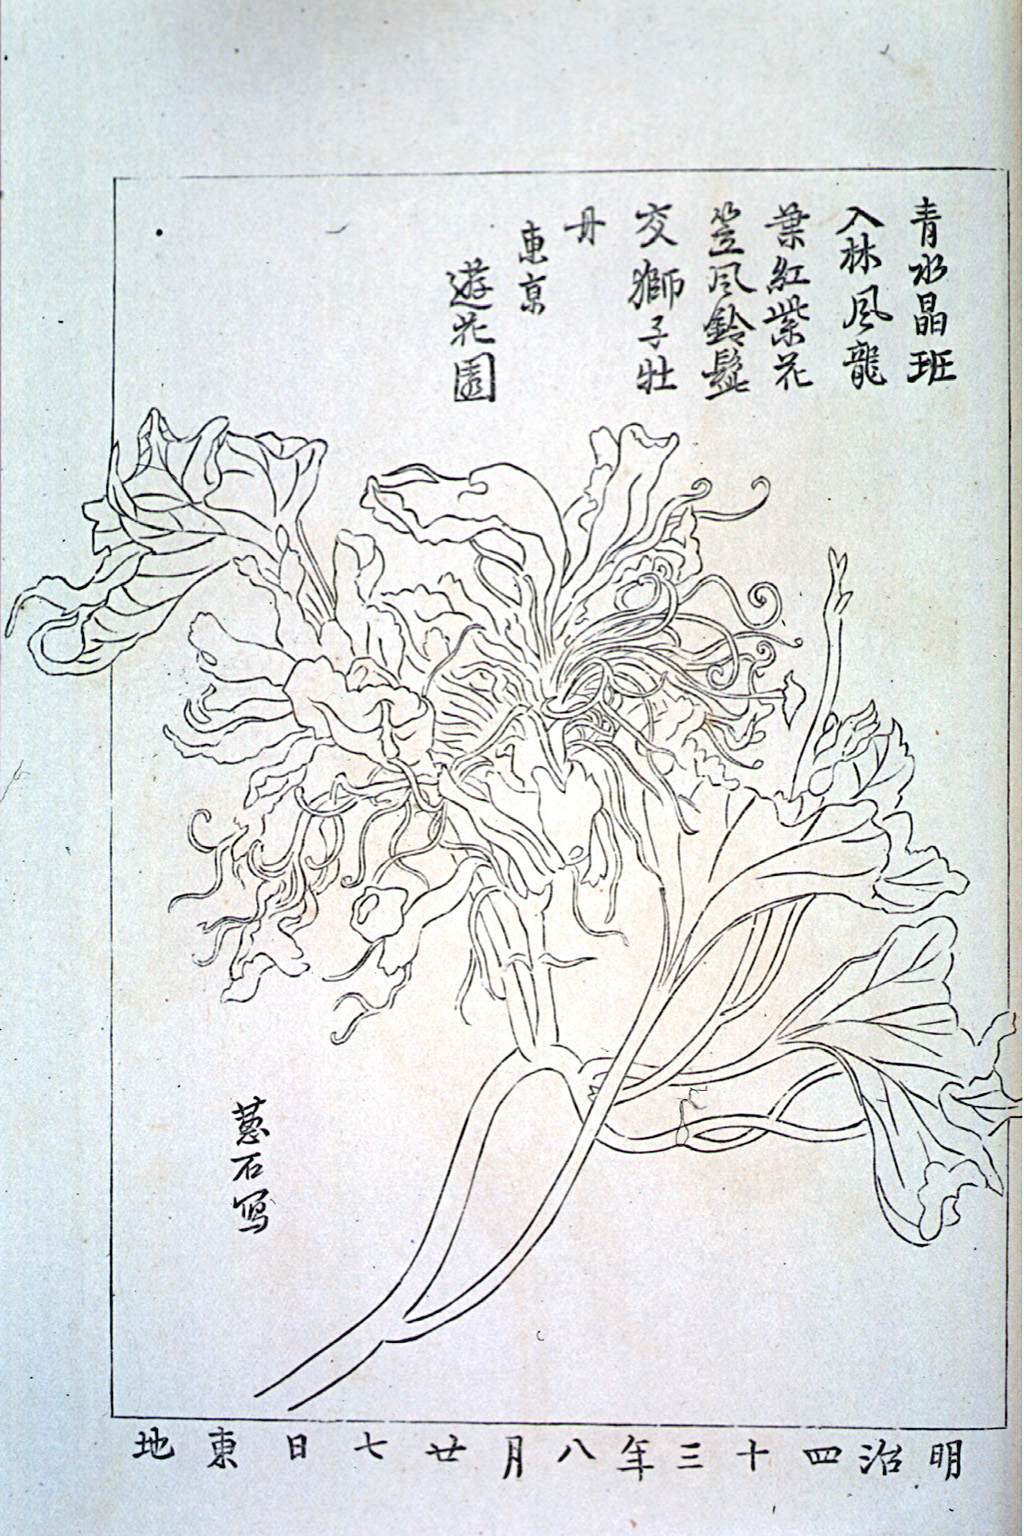 青水晶斑
入林風龍
葉紅紫花
笠風鈴髭
交獅子牡
丹
東京
遊花園
葱石写
明治四十三年八月廿七日東地